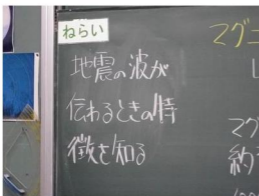 ねらい
地震の波が
伝わるときの特
徴を知る
マグニ
マグ
約